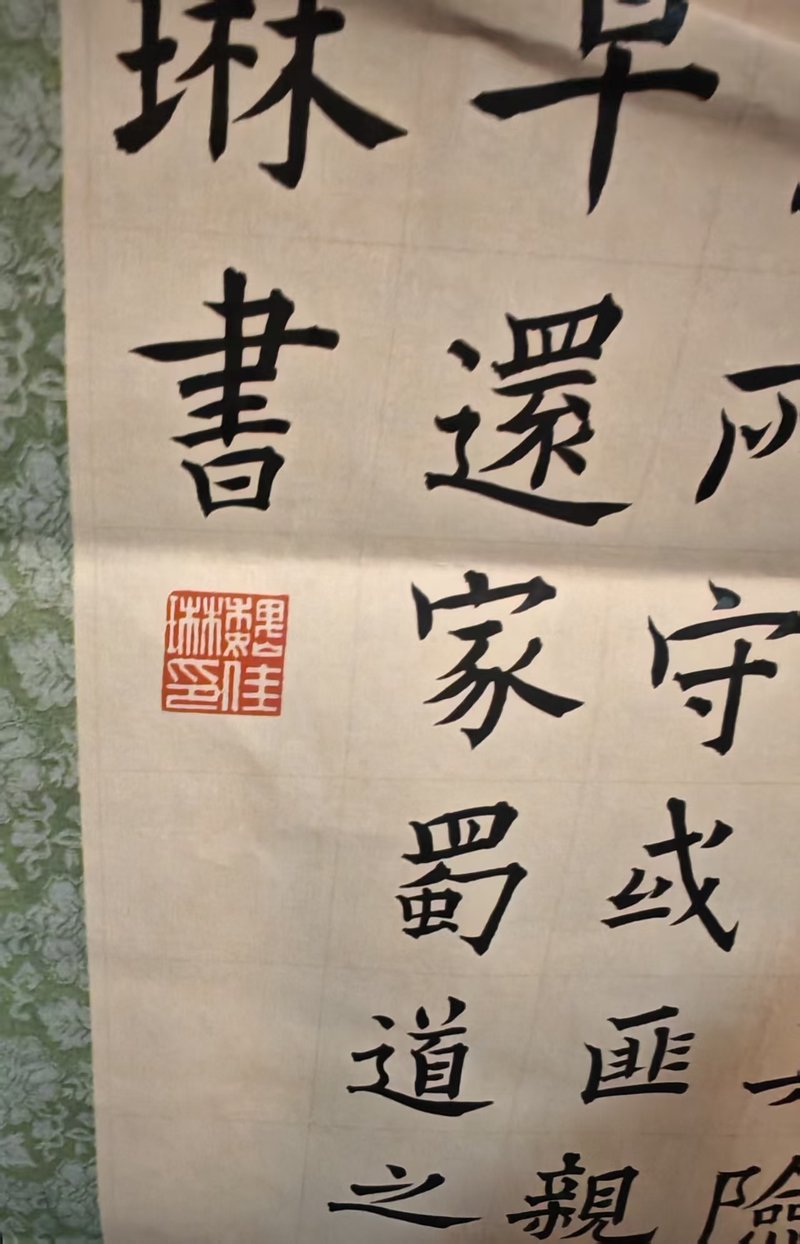 險
所守或匪親
早還家蜀道之
琳書
魏佳
琳印